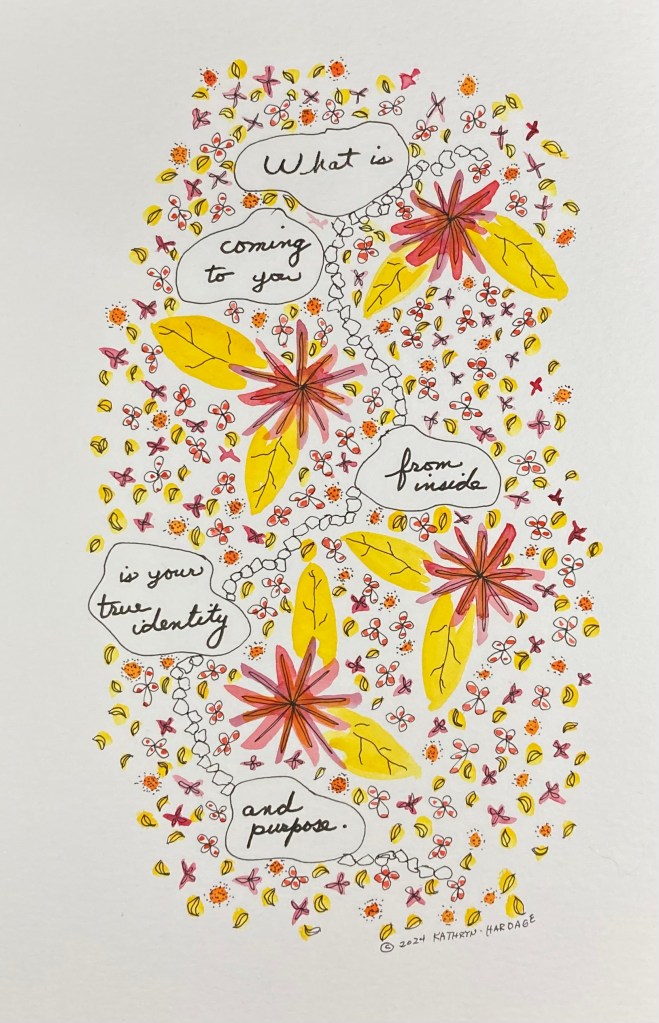 What is
coming
to you
from
inside
is your
true
identity
and
purpose.
© 2024 KATHRYN·HARDAGE